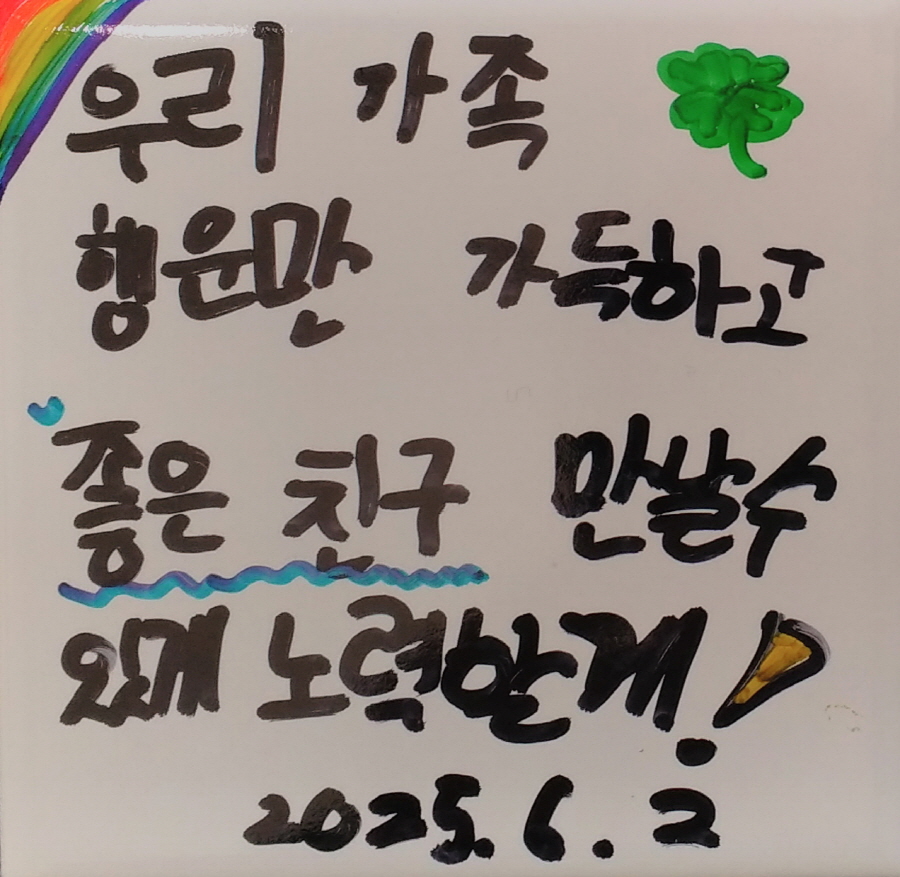 우리 가족
행운만 가득하고
좋은 친구 만날수
있게 노력할게!
2025. 6. 2